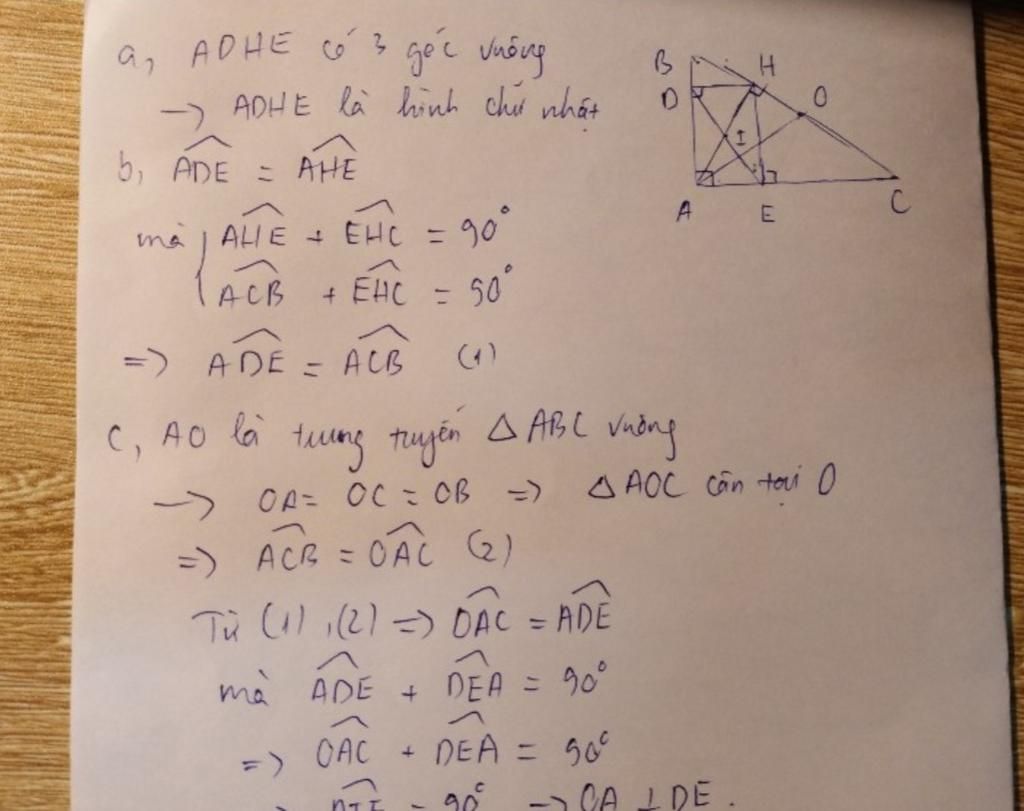 a, ADHE có 3 góc vuông
→ ADHE là hình chữ nhật
b, \widehat{ADE} = \widehat{AHE}
mà { \widehat{AHE} + \widehat{EHC} = 90°
\widehat{ACB} + \widehat{EHC} = 90°
=> \widehat{ADE} = \widehat{ACB} (1)
c, AO là trung tuyến △ABC vuông
→ OA = OC = OB => △AOC cân tại O
=> \widehat{ACB} = \widehat{OAC} (2)
Từ (1), (2) => \widehat{OAC} = \widehat{ADE}
mà \widehat{ADE} + \widehat{DEA} = 90°
=> \widehat{OAC} + \widehat{DEA} = 90°
= 90° → OA ⊥ DE.
B
H
D
O
I
A
E
C